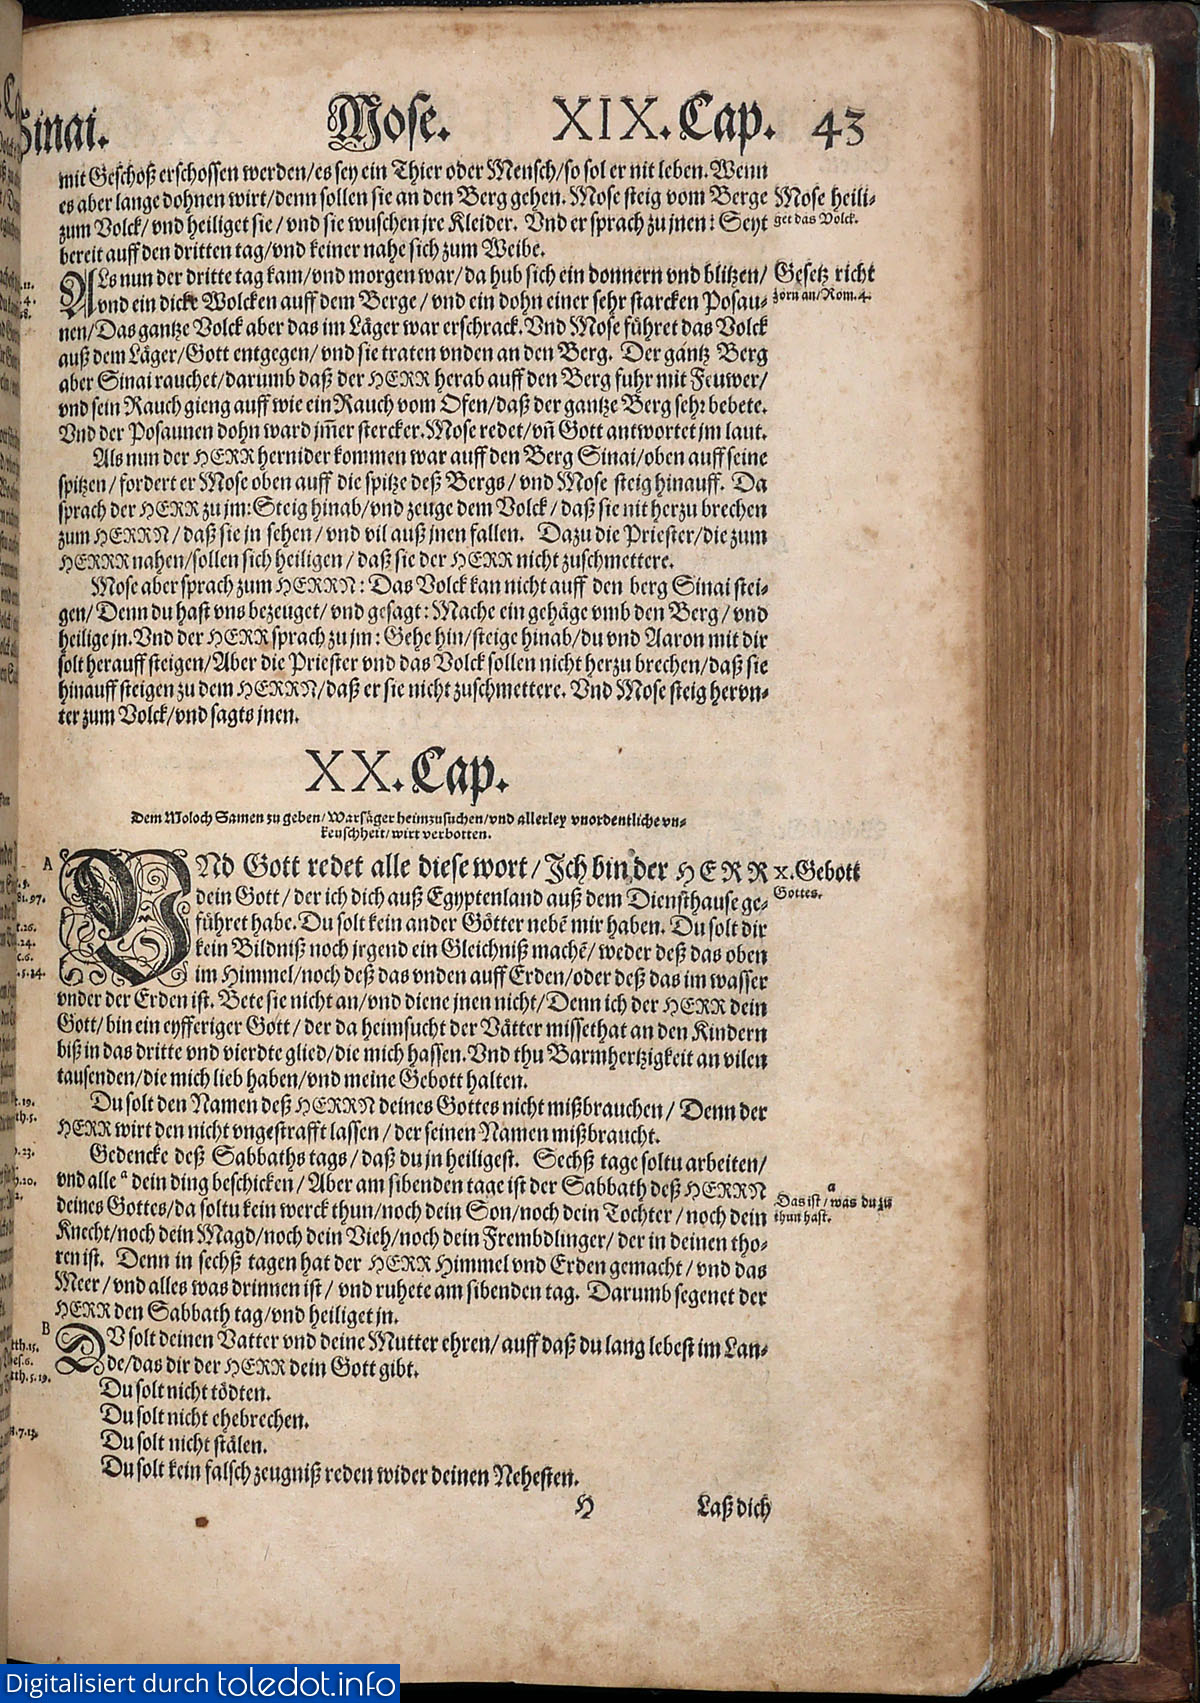 Sinai.
Mose.
XIX. Cap. 43
mit Geschoß erschossen werden/es sey ein Thier oder Mensch/so sol er nit leben. Wenn
es aber lange dohnen wirt/denn sollen sie an den Berg gehen. Mose steig vom Berge
zum Volck/ vnd heiliget sie/ vnd sie wuschen jre Kleider. Vnd er sprach zu jnen: Seyt
bereit auff den dritten tag/vnd keiner nahe sich zum Weibe.
Mose heili-
get das Volck.
ALs nun der dritte tag kam/vnd morgen war/da hub sich ein donnern vnd blitzen/
vnd ein dicke Wolcken auff dem Berge/ vnd ein dohn einer sehr starcken Posau-
nen/Das gantze Volck aber das im Läger war erschrack. Vnd Mose führet das Volck
auß dem Läger/Gott entgegen/ vnd sie traten vnden an den Berg. Der gantz Berg
aber Sinai rauchet/darumb daß der HERR herab auff den Berg fuhr mit Feuwer/
vnd sein Rauch gieng auff wie ein Rauch vom Ofen/daß der gantze Berg sehr bebete.
Vnd der Posaunen dohn ward jm̄er stercker. Mose redet/vn̄ Gott antwortet jm laut.
Gesetz richt
zorn an/Rom. 4.
Als nun der HERR hernider kommen war auff den Berg Sinai/oben auff seine
spitzen/fordert er Mose oben auff die spitze deß Bergs/ vnd Mose steig hinauff. Da
sprach der HERR zu jm: Steig hinab/vnd zeuge dem Volck/ daß sie nit herzu brechen
zum HERRN/ daß sie jn sehen/ vnd vil auß jnen fallen. Dazu die Priester/die zum
HERRN nahen/sollen sich heiligen/ daß sie der HERR nicht zuschmettere.
Mose aber sprach zum HERRN: Das Volck kan nicht auff den berg Sinai stei-
gen/ Denn du hast vns bezeuget/ vnd gesagt: Mache ein gehäge vmb den Berg/ vnd
heilige jn. Vnd der HERR sprach zu jm: Gehe hin/steige hinab/du vnd Aaron mit dir
solt herauff steigen/Aber die Priester vnd das Volck sollen nicht herzu brechen/daß sie
hinauff steigen zu dem HERRN/daß er sie nicht zuschmettere. Vnd Mose steig hervn-
ter zum Volck/vnd sagts jnen.
XX. Cap.
Dem Moloch Samen zu geben/Warsäger heimzusuchen/vnd allerley vnordentliche vn-
keuschheit/wirt verbotten.
A
VNd Gott redet alle diese wort/Ich bin der HERR
dein Gott/ der ich dich auß Egyptenland auß dem Diensthause ge-
führet habe. Du solt kein ander Götter nebē mir haben. Du solt dir
kein Bildniß noch jrgend ein Gleichniß machē/ weder deß das oben
im Himmel/noch deß das vnden auff Erden/oder deß das im wasser
vnder der Erden ist. Bete sie nicht an/vnd diene jnen nicht/Denn ich der HERR dein
Gott/bin ein eyfferiger Gott/ der da heimsucht der Vätter missethat an den Kindern
biß in das dritte vnd vierdte glied/die mich hassen. Vnd thu Barmhertzigkeit an vilen
tausenden/die mich lieb haben/vnd meine Gebott halten.
X. Gebott
Gottes.
Du solt den Namen deß HERRN deines Gottes nicht mißbrauchen/ Denn der
HERR wirt den nicht vngestrafft lassen/ der seinen Namen mißbraucht.
Gedencke deß Sabbaths tags/ daß du jn heiligest. Sechß tage soltu arbeiten/
vnd alle a dein ding beschicken/ Aber am sibenden tage ist der Sabbath deß HERRN
deines Gottes/da soltu kein werck thun/noch dein Son/noch dein Tochter/ noch dein
Knecht/noch dein Magd/noch dein Vieh/noch dein Frembdlinger/ der in deinen tho-
ren ist. Denn in sechß tagen hat der HERR Himmel vnd Erden gemacht/ vnd das
Meer/ vnd alles was drinnen ist/ vnd ruhete am sibenden tag. Darumb segenet der
HERR den Sabbath tag/vnd heiliget jn.
a
Das ist/ was du zu
thun hast.
B
DV solt deinen Vatter vnd deine Mutter ehren/auff daß du lang lebest im Lan-
de/das dir der HERR dein Gott gibt.
Du solt nicht tödten.
Du solt nicht ehebrechen.
Du solt nicht stälen.
Du solt kein falsch zeugniß reden wider deinen Nehesten.
H
Laß dich
Digitalisiert durch toledot.info